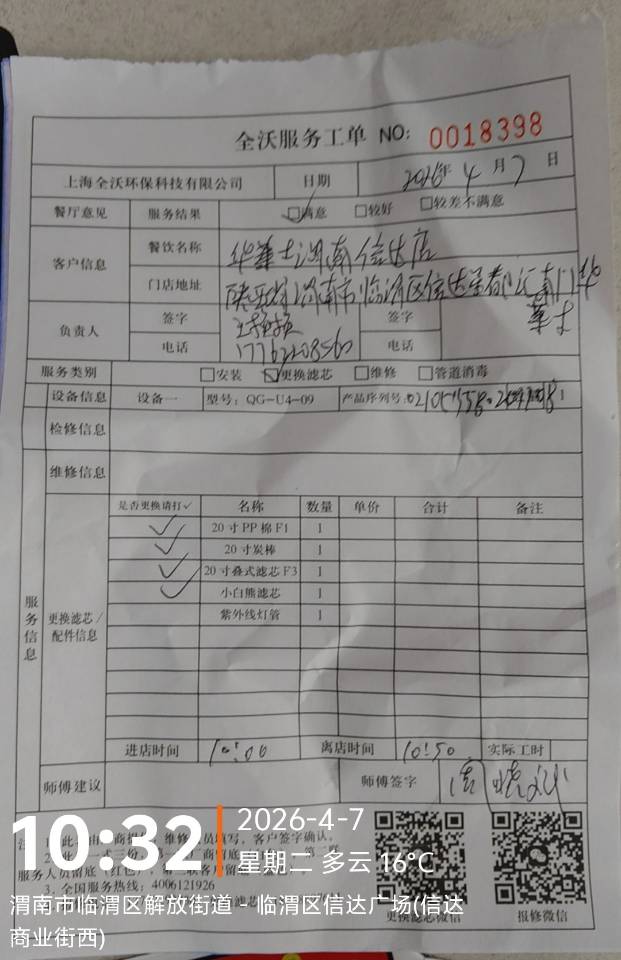 全沃服务工单 NO: 0018398
上海全沃环保科技有限公司 日期 2026年 4 月 7 日
餐厅意见 服务结果 ☑满意 □较好 □较差不满意
客户信息 餐饮名称 华莱士渭南信达店
门店地址 陕西省渭南市临渭区信达
华莱士
负责人 签字 签字
电话 电话
服务类别 □安装 ☑更换滤芯 □维修 □管道消毒
设备信息 设备一 型号：QG-U4-09 产品序列号:
检修信息
维修信息
服务信息 更换滤芯/配件信息
是否更换请打✓ 名称 数量 单价 合计 备注
✓ 20寸PP棉F1 1
✓ 20寸炭棒 1
✓ 20寸叠式滤芯F3 1
✓ 小白熊滤芯 1
紫外线灯管 1
进店时间 10:00 离店时间 10:50 实际工时
师傅建议 师傅签字
维修人员填写，客户签字确认。
服务人员留底（红色）
3、全国服务热线：4006121926
更换滤芯微信 报修微信
10:32
2026-4-7
星期二 多云 16℃
渭南市临渭区解放街道 - 临渭区信达广场(信达
商业街西)